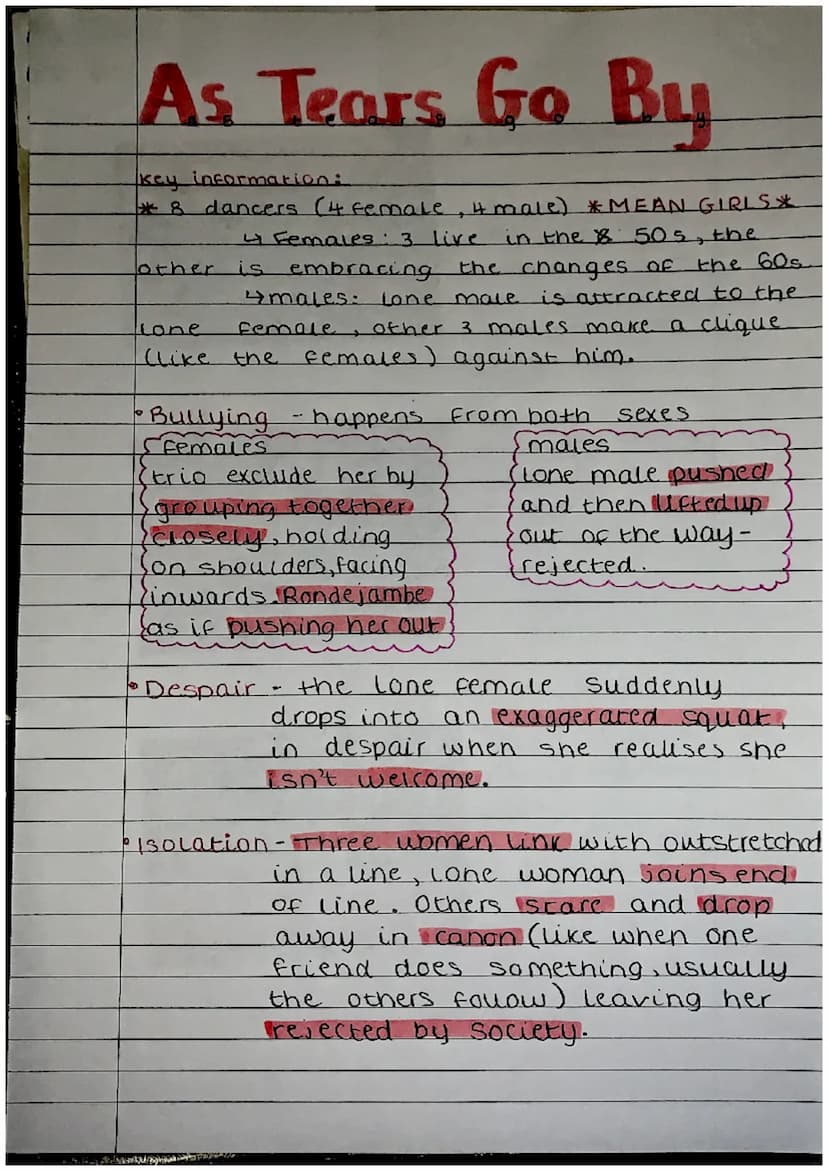 As Tears Go By
Key information:
* 8 dancers (4 female, 4 male) *MEAN GIRLS*
↳ Females: 3 live in the 50s, the
other is embracing the changes of the 60s
↳ males: lone male is attracted to the
lone female, other 3 males make a clique
(like the females) against him.
• Bullying - happens from both sexes
females
trio exclude her by
grouping together
closely, holding
on shoulders, facing
inwards. Rondejambe
as if pushing her out
males
lone male pushed
and then lifted up
out of the way-
rejected.
• Despair - the lone female suddenly
drops into an exaggerated squat,
in despair when she realises she
isn't welcome.
• Isolation - Three women link with outstretched
in a line, lone woman joins end
of line. Others stare and drop
away in canon (like when one
friend does something, usually
the others follow) leaving her
rejected by society.